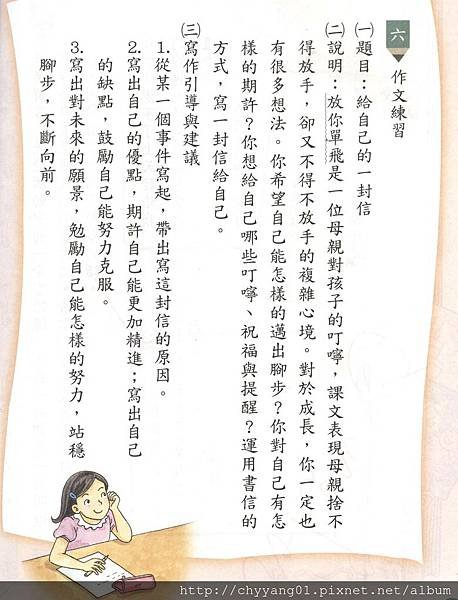 六
作文練習
㈠題目：給自己的一封信
㈡說明：放你單飛是一位母親對孩子的叮嚀，課文表現母親捨不
得放手，卻又不得不放手的複雜心境。對於成長，你一定也
有很多想法。你希望自己能怎樣的邁出腳步？你對自己有怎
樣的期許？你想給自己哪些叮嚀、祝福與提醒？運用書信的
方式，寫一封信給自己。
㈢寫作引導與建議
1.從某一個事件寫起，帶出寫這封信的原因。
2.寫出自己的優點，期許自己能更加精進；寫出自己
的缺點，鼓勵自己能努力克服。
3.寫出對未來的願景，勉勵自己能怎樣的努力，站穩
腳步，不斷向前。
http://chyyang01.pixnet.net/album